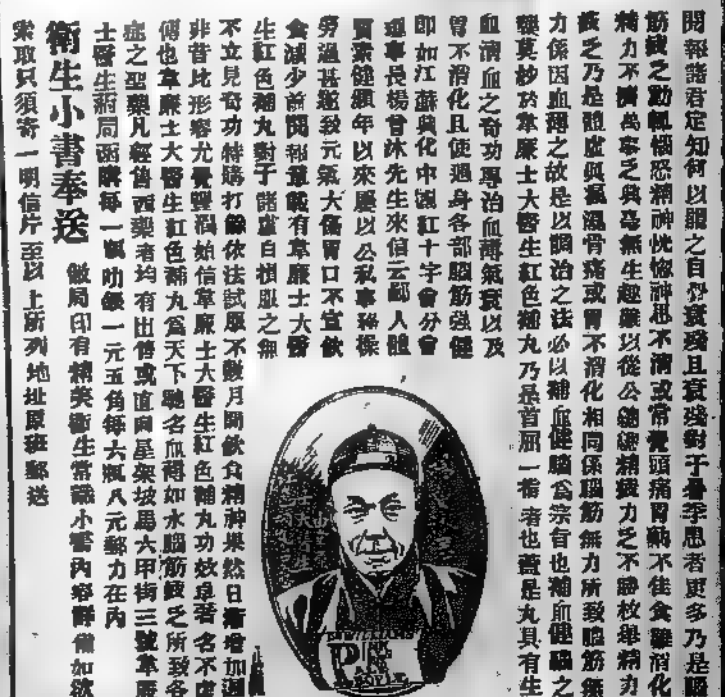 閱報諸君定知何以謂之自身衰殘且衰殘對于暑季患者更多乃是腦
筋疲之動輒惱怒精神恍惚神思不清或常覺頭痛胃滿不佳食難消化
精力不濟萬事乏興毫無生趣難以從公種種精疲力乏不勝枚舉精力
疲乏乃是體虛與風濕骨痛或胃不消化相同係腦筋無力所致腦筋無
力係因血薄之故是以調治之法必以補血健腦為宗旨也補血健腦之
藥莫妙於韋廉士大醫生紅色補丸乃是首屈一指者也蓋是丸具有生
血清血之奇功專治血薄氣衰以及
胃不消化且使遍身各部腦筋強健
即如江蘇興化中國紅十字會分會
理事長楊曾沐先生來信云鄙人體
質素健頻年以來屢以公私事務操
勞過甚遂致元氣大傷胃口不宣飲
食減少前閱報章載有韋廉士大醫
生紅色補丸對于諸虛百損服之無
不立見奇功特購打餘依法試服不數月間飲食精神果然日漸增加迥
非昔比形容尤覺豐潤始信韋廉士大醫生紅色補丸功效卓著名不虛
傳也韋廉士大醫生紅色補丸為天下馳名血薄如水腦筋疲乏所致各
症之聖藥凡經售西藥者均有出售或直向星架坡馬六甲街三號韋廉
士醫生藥局函購每一瓶叻銀一元五角每六瓶八元郵力在內
衛生小書奉送
敝局印有精美衛生常識小書內容詳備如欲
索取只須寄一明信片至以上所列地址原班郵送
DR WILLIAMS
PINK
PILLS